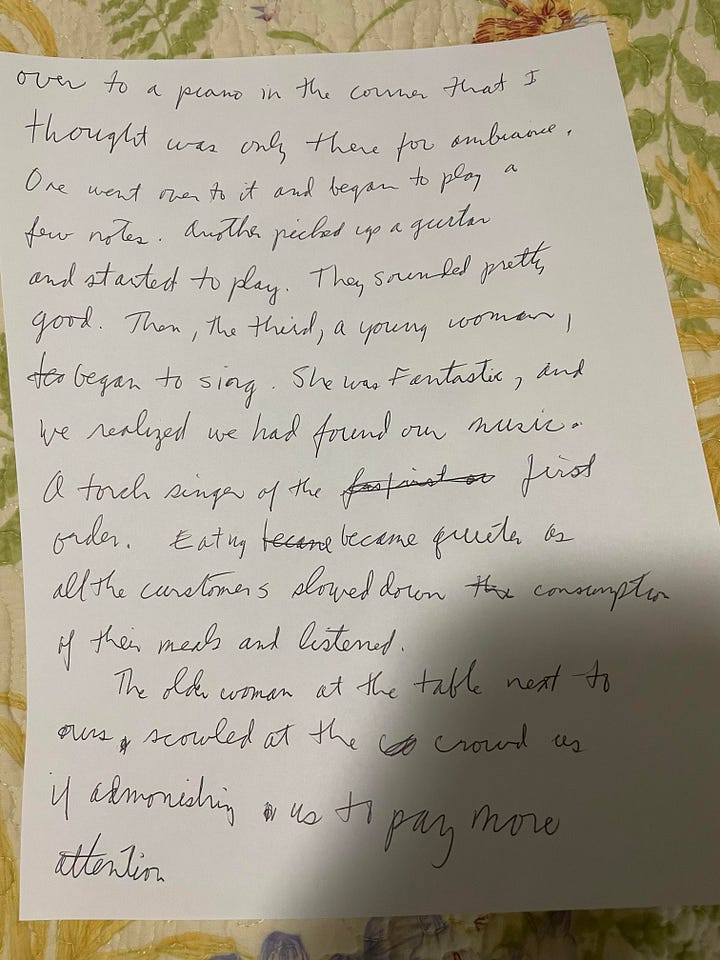 over to a piano in the corner that I
thought was only there for ambiance.
One went over to it and began to play a
few notes. Another picked up a guitar
and started to play. They sounded pretty
good. Then, the third, a young woman,
began to sing. She was Fantastic, and
we realized we had found our music.
A torch singer of the first
order. Eating became became quieter as
all the customers slowed down the consumption
of their meals and listened.
The older woman at the table next to
ours scowled at the crowd as
if admonishing us to pay more
attention